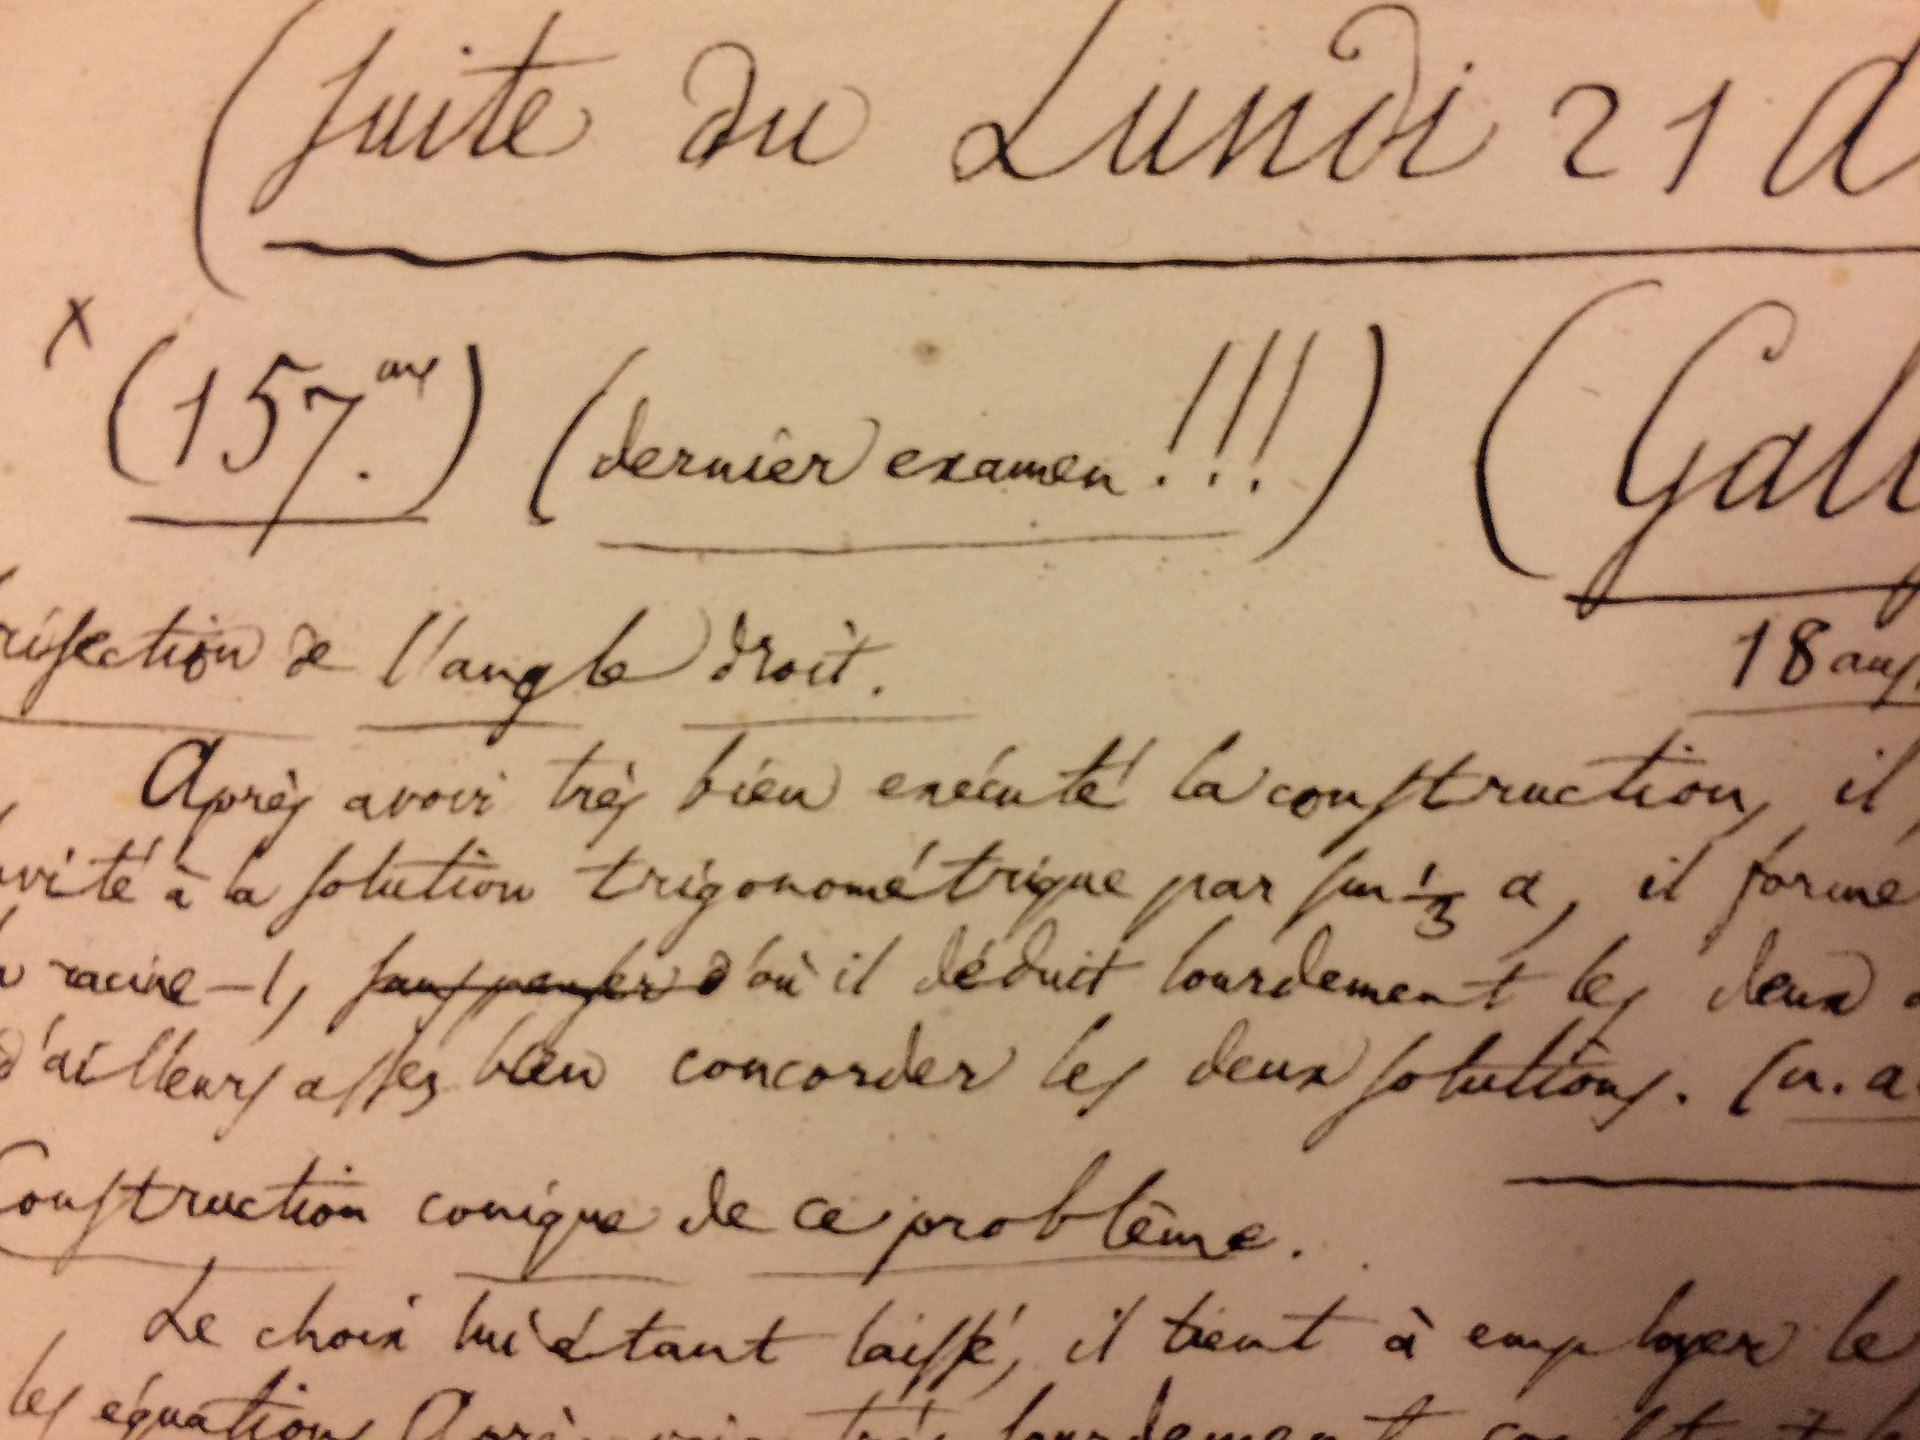 (suite du Lundi 21
x (157.me) (dernier examen!!!) (Gall
risection de l'angle droit.
18 ans
Après avoir très bien exécuté la construction, il
vité à la solution trigonométrique par sin 1/3 a, il forme
racine -1, sans penser d'où il déduit lourdement les deux
d'ailleurs assez bien concorder les deux solutions. (n. a
Construction conique de ce problème.
Le choix lui étant laissé, il tient à employer le
les équations Après avoir très lourdement